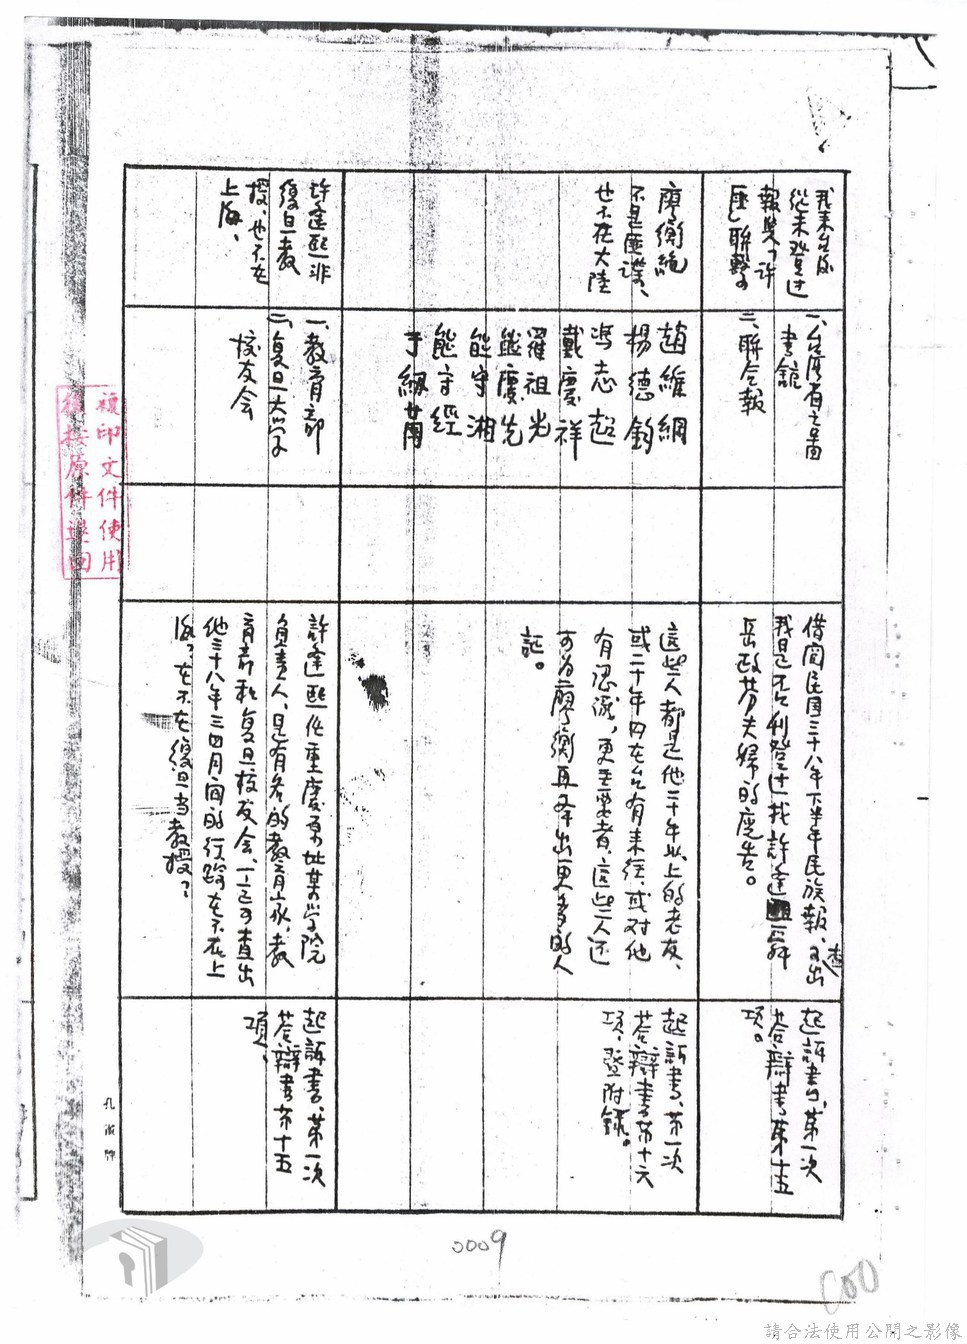 我來台後
從未登過
報與「許
匪」聯繫
一、台灣省立圖
書館
二、聯合報
借閱民國三十八年下半年民族報、查出
我是否利登過找許逢熙
岳政芳夫婦的廣告。
起訴書、第一次
答辯書第十五
項。
廖衡絕
不是匪諜、
也不在大陸
趙維綱
楊德鈞
馮志超
戴慶祥
羅祖光
熊慶先
熊守湘
熊守經
于綱
這些人都是他二十年以上的老友、
或二十年內在台有來往、或對他
有認識，更重要者、這些人還
可為廖衡再舉出更多的人
証。
起訴書、第一次
答辯書第十六
項、暨附錄。
許逢熙非
復旦教
授、也不在
上海、
一、教育部
二、复旦大学
校友会
許逢熙任重慶原址某学院
負責人、是有名的教育家、教
育部和复旦校友会、一定可查出
他三十八年三四月間的行踪在不在上
海？在不在復旦当教授？
起訴書、第一次
答辯書第十五
項、
複印文件使用
後按原件退回
0009
請合法使用公開之影像